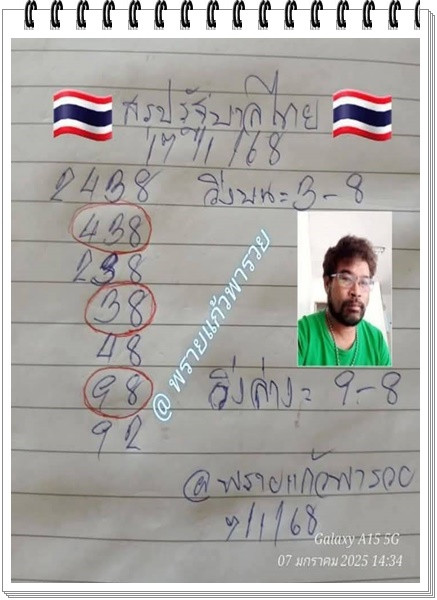 สรุปรัฐบาลไทย
17/1/68
2438 วิ่งบน = 3-8
438
238
38
48
98 วิ่งล่าง = 9-8
92
@ พรายแก้วพารวย
@ พรายแก้วพารวย
7/1/68
Galaxy A15 5G
07 มกราคม 2025 14:34